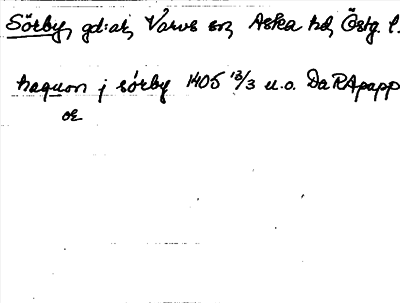 Sörby, gd:ar, Varvs sn, Aska hd, Östg. l.
haquon j sørby 1405 13/3 u.o. DaRApapp
or